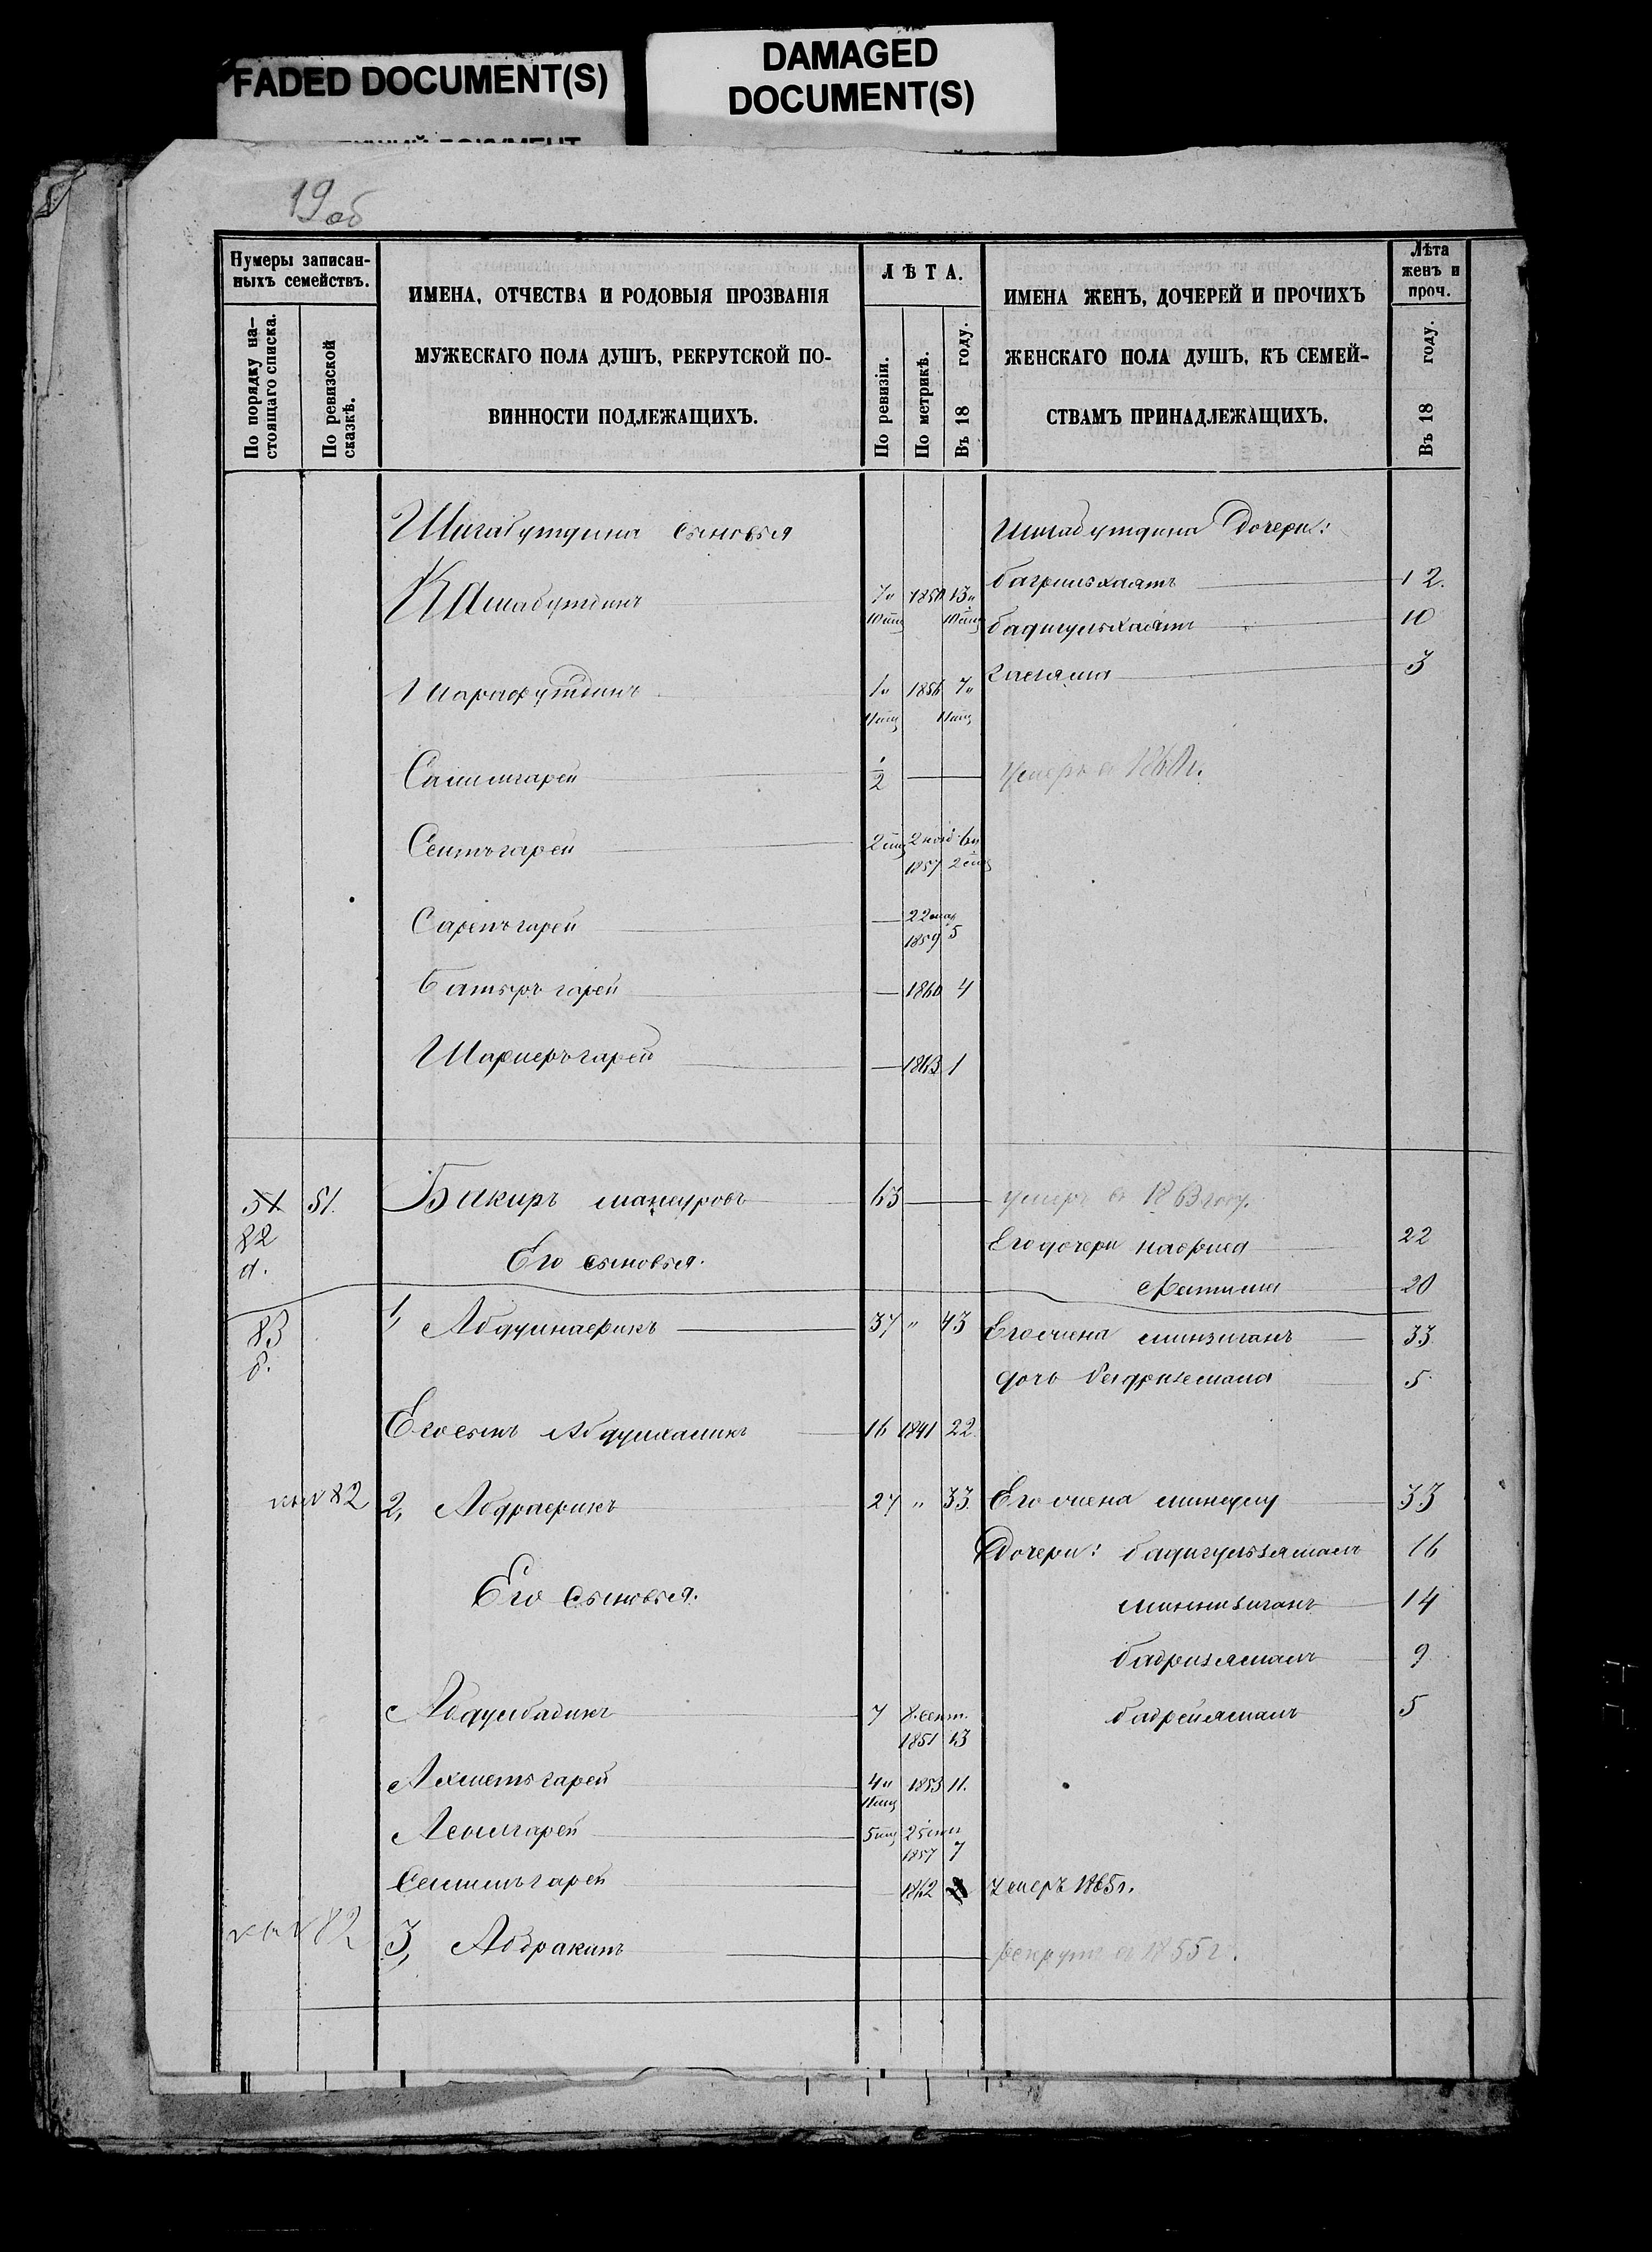 FADED DOCUMENT(S)
DAMAGED
DOCUMENT(S)
19 об
Нумеры записан-
ныхъ семействъ.
По порядку на-
стоящаго списка.
По ревизской
сказкѣ.
ИМЕНА, ОТЧЕСТВА И РОДОВЫЯ ПРОЗВАНІЯ
МУЖЕСКАГО ПОЛА ДУШЪ, РЕКРУТСКОЙ ПО-
ВИННОСТИ ПОДЛЕЖАЩИХЪ.
ЛѢТА.
По ревизіи.
По метрикѣ.
Въ 18 году.
ИМЕНА ЖЕНЪ, ДОЧЕРЕЙ И ПРОЧИХЪ
ЖЕНСКАГО ПОЛА ДУШЪ, КЪ СЕМЕЙ-
СТВАМЪ ПРИНАДЛЕЖАЩИХЪ.
Лѣта
женъ и
проч.
Въ 18 году.
Шигабутдина сыновья Шигабутдина Дочери:
Камабутдинъ 7 1850 13 багрильхаятъ 12.
бадигульхаятъ 10
Шарафутдинъ 1 1856 7 3
Салимгарей 1/2 умеръ въ
Сеитъгарей 2 2 нояб 6
1857 2
Сарепъгарей — 22 мар
1859 5
Батыръ гарей — 1860 4
Шагиеръгарей — 1863 1
51 51. Бакиръ мансуровъ 63 — умеръ въ 1863 году.
82
а. Его сыновья. Его дочери 22
Фатима 20
83 1, Абдулнасрикъ 37 " 43 Его жена минзиганъ 33
б. дочь бадризамана 5
Его сынъ Абдулхаликъ 16 1841 22
82 2, Абдрафикъ 27 " 33 Его жена минсулу 33
Дочери: бадигульзяманъ 16
Его сыновья. миннизиганъ 14
бадризяманъ 9
Абдулбадикъ 7 8 сент. 5
1851 13
Ахметъ гарей 4 1853 11.
Аслыгарей 5 25
1857 7
Селимъ гарей 1862 Умеръ 1865 г.
82 3, Абдракипъ рекрутъ въ 1855 г.